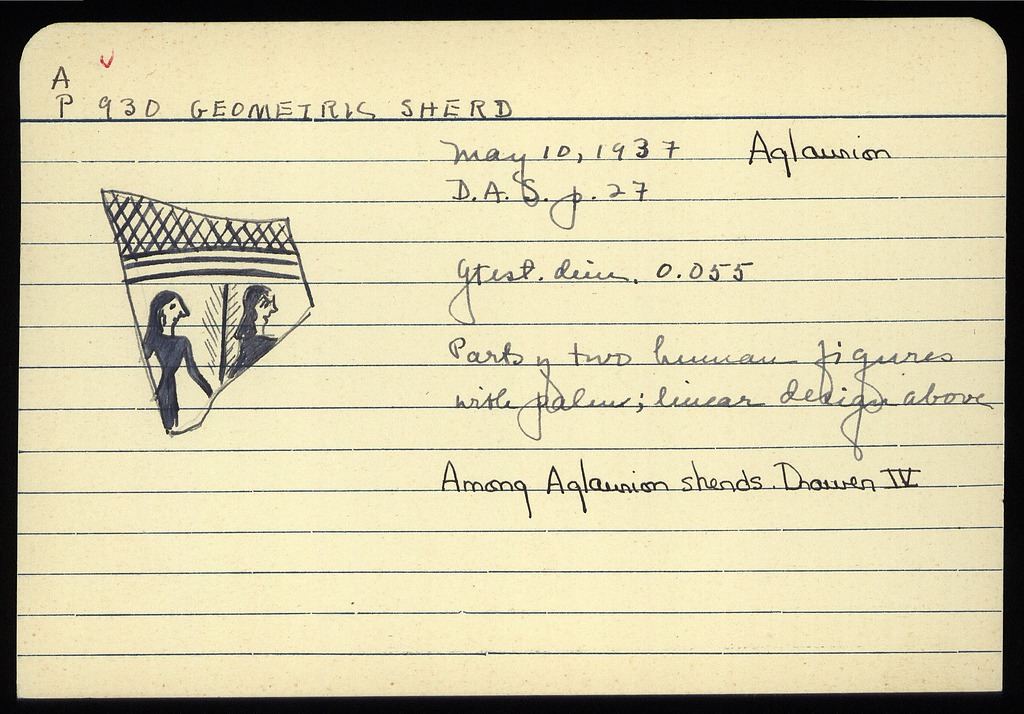 A
P 930 GEOMETRIC SHERD
May 10, 1937 Aglaurion
D.A.S. p. 27
Gtest. dim. 0.055
Parts of two human figures
with palm; linear design above
Among Aglaurion sherds. Drawer IV